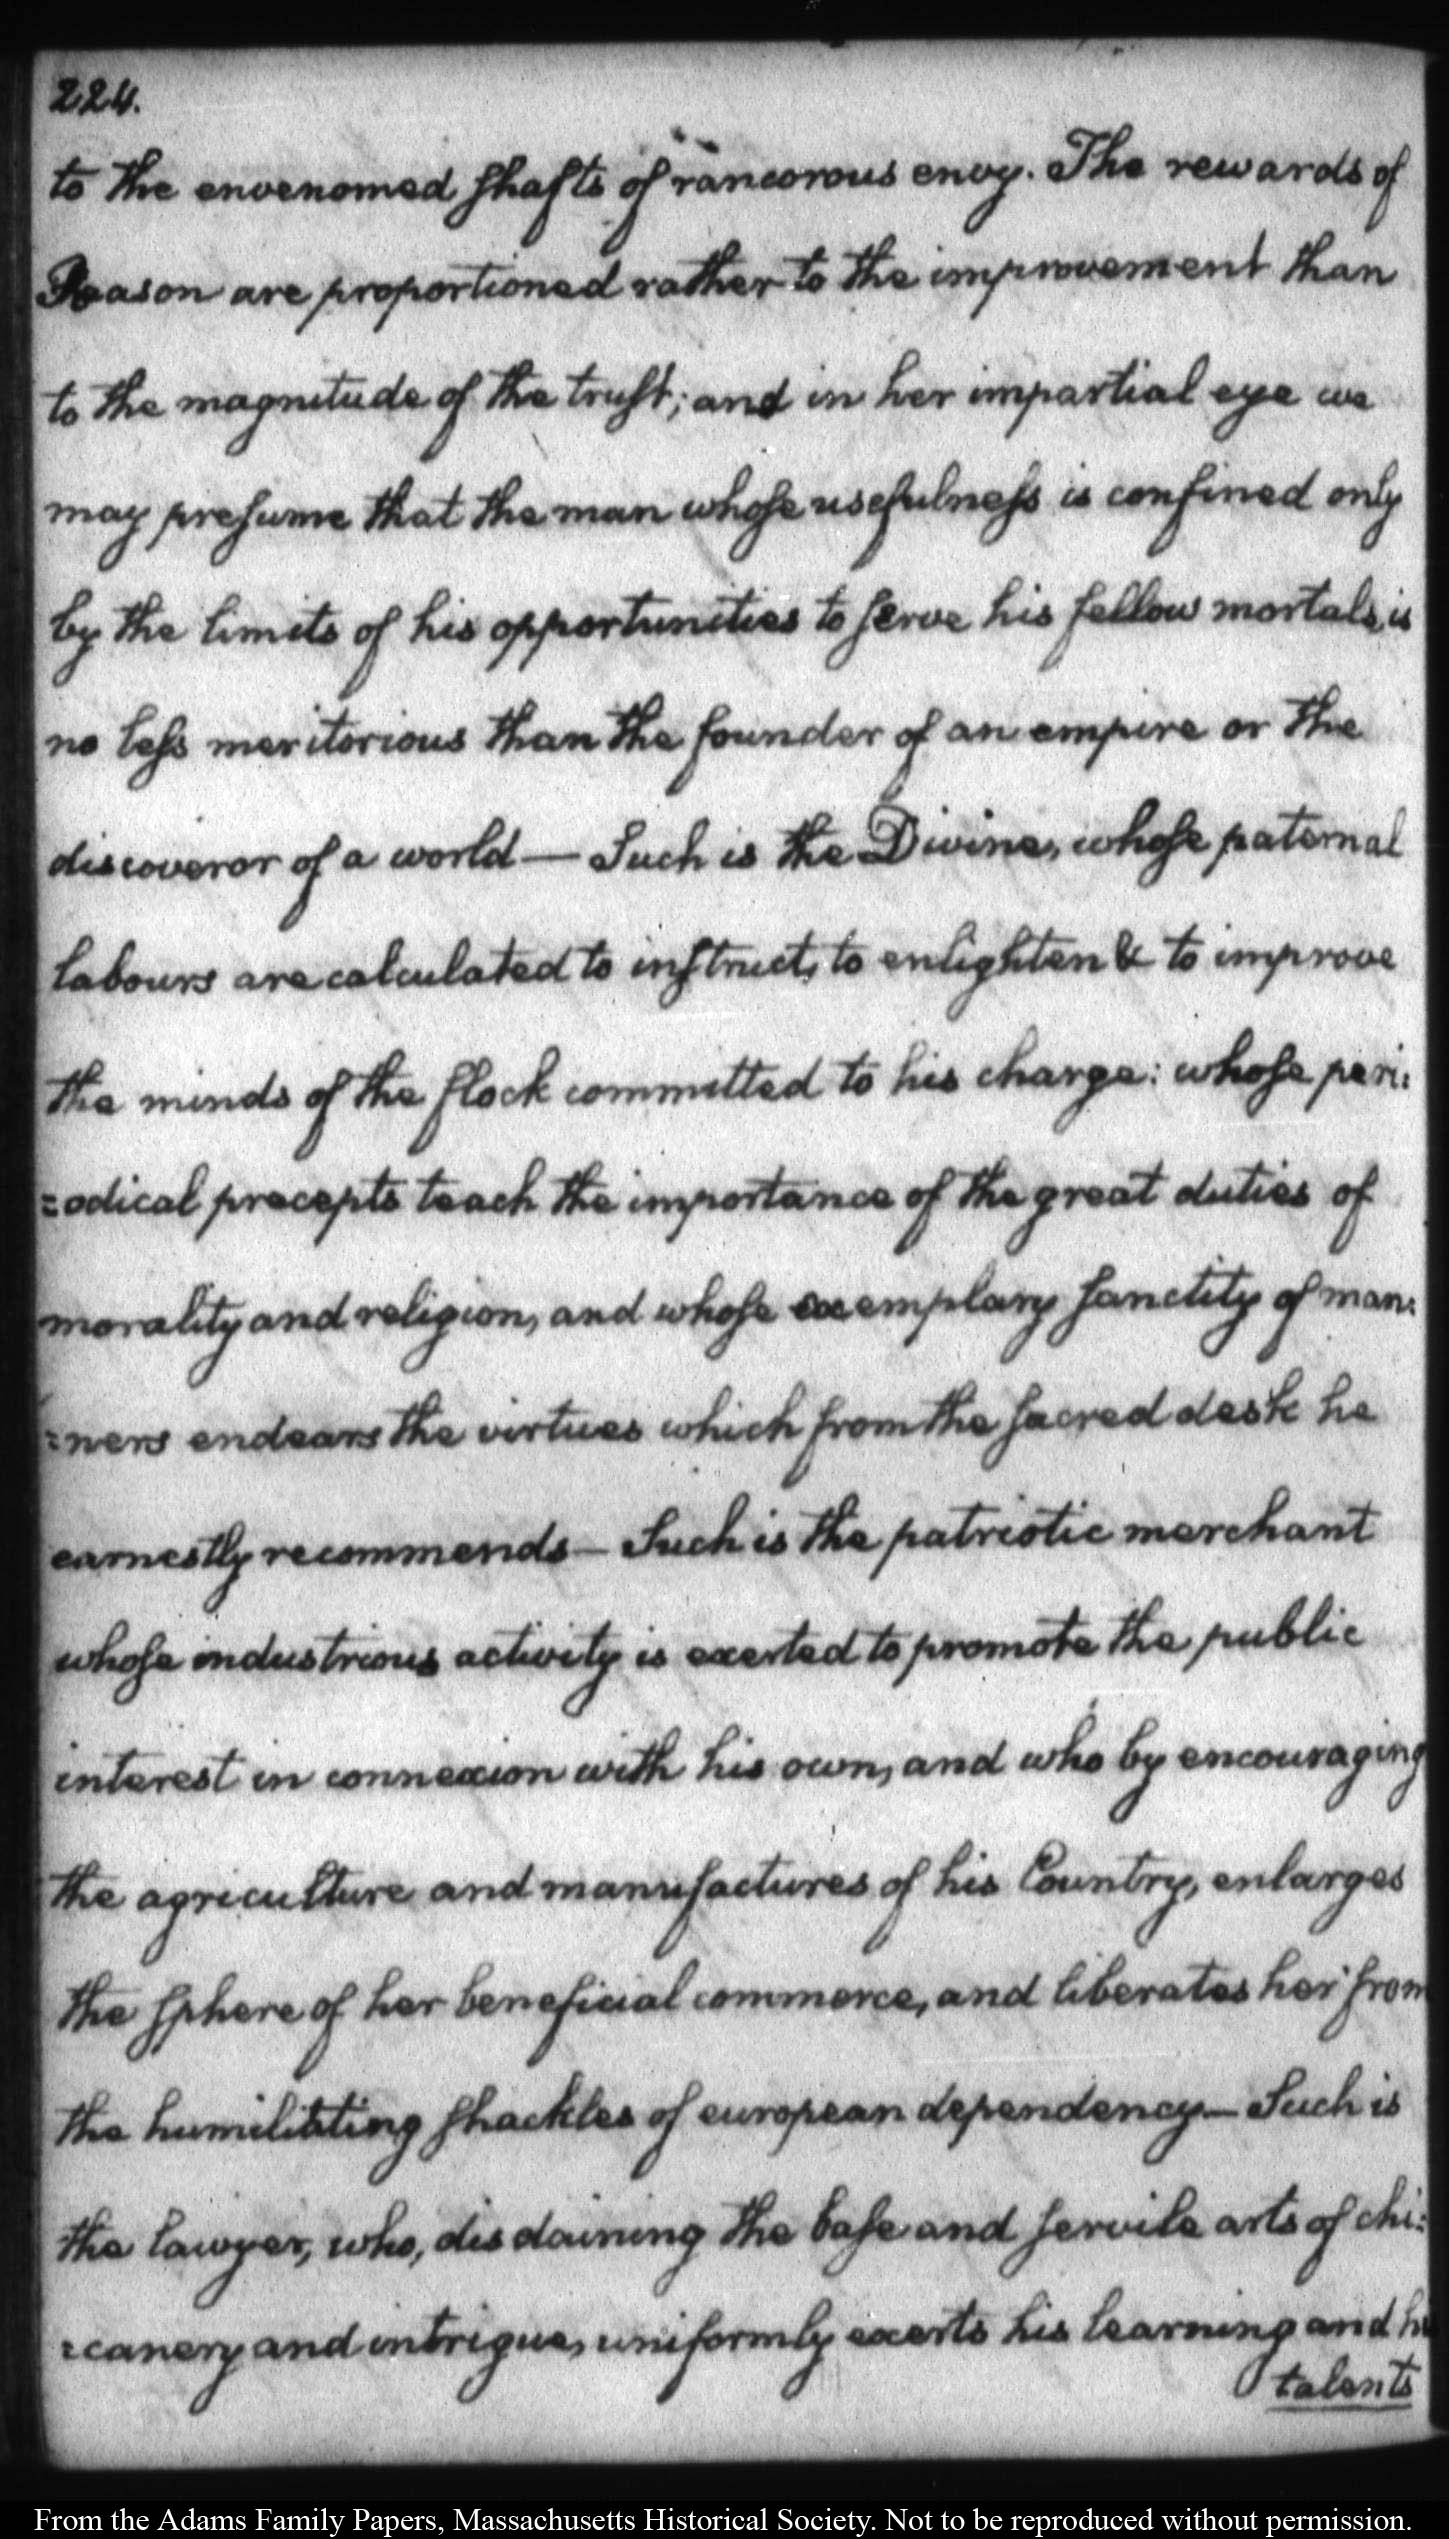 224.
to the envenomed shafts of rancorous envy. The rewards of
Reason are proportioned rather to the improvement than
to the magnitude of the trust; and in her impartial eye we
may presume that the man whose usefulness is confined only
by the limits of his opportunities to serve his fellow mortals, is
no less meritorious than the founder of an empire or the
discoveror of a world — Such is the Divine, whose paternal
labours are calculated to instruct, to enlighten & to improve
the minds of the flock committed to his charge: whose peri:
=odical precepts teach the importance of the great duties of
morality and religion, and whose exemplary sanctity of man:
=ners endears the virtues which from the sacred desk he
earnestly recommends — Such is the patriotic merchant
whose industrious activity is exerted to promote the public
interest in connexion with his own, and who by encouraging
the agriculture and manufactures of his Country, enlarges
the sphere of her beneficial commerce, and liberates her from
the humiliating shackles of european dependency — Such is
the lawyer, who, disdaining the base and servile arts of chi:
=canery and intrigue, uniformly exerts his learning and
talents
From the Adams Family Papers, Massachusetts Historical Society. Not to be reproduced without permission.